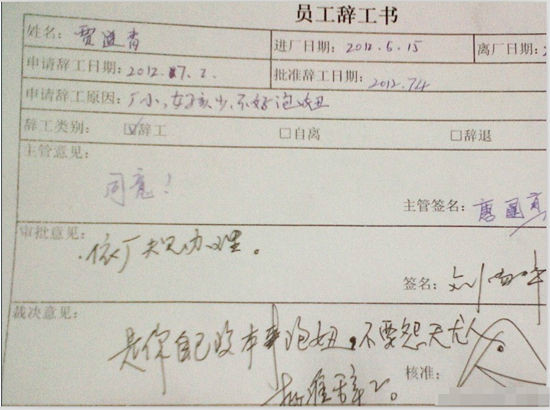 员工辞工书
姓名： 贾进育 进厂日期：2012.6.15 离厂日期：
申请辞工日期：2012.7.2. 批准辞工日期：2012.7.4
申请辞工原因：厂小，女孩少，不好泡妞
辞工类别： ☑辞工 □自离 □辞退
主管意见：
同意！
主管签名：唐
审批意见：
依厂规办理。
签名：刘
裁决意见：
是你自己没本事泡妞，不要怨天尤人
核准：
批准辞工。